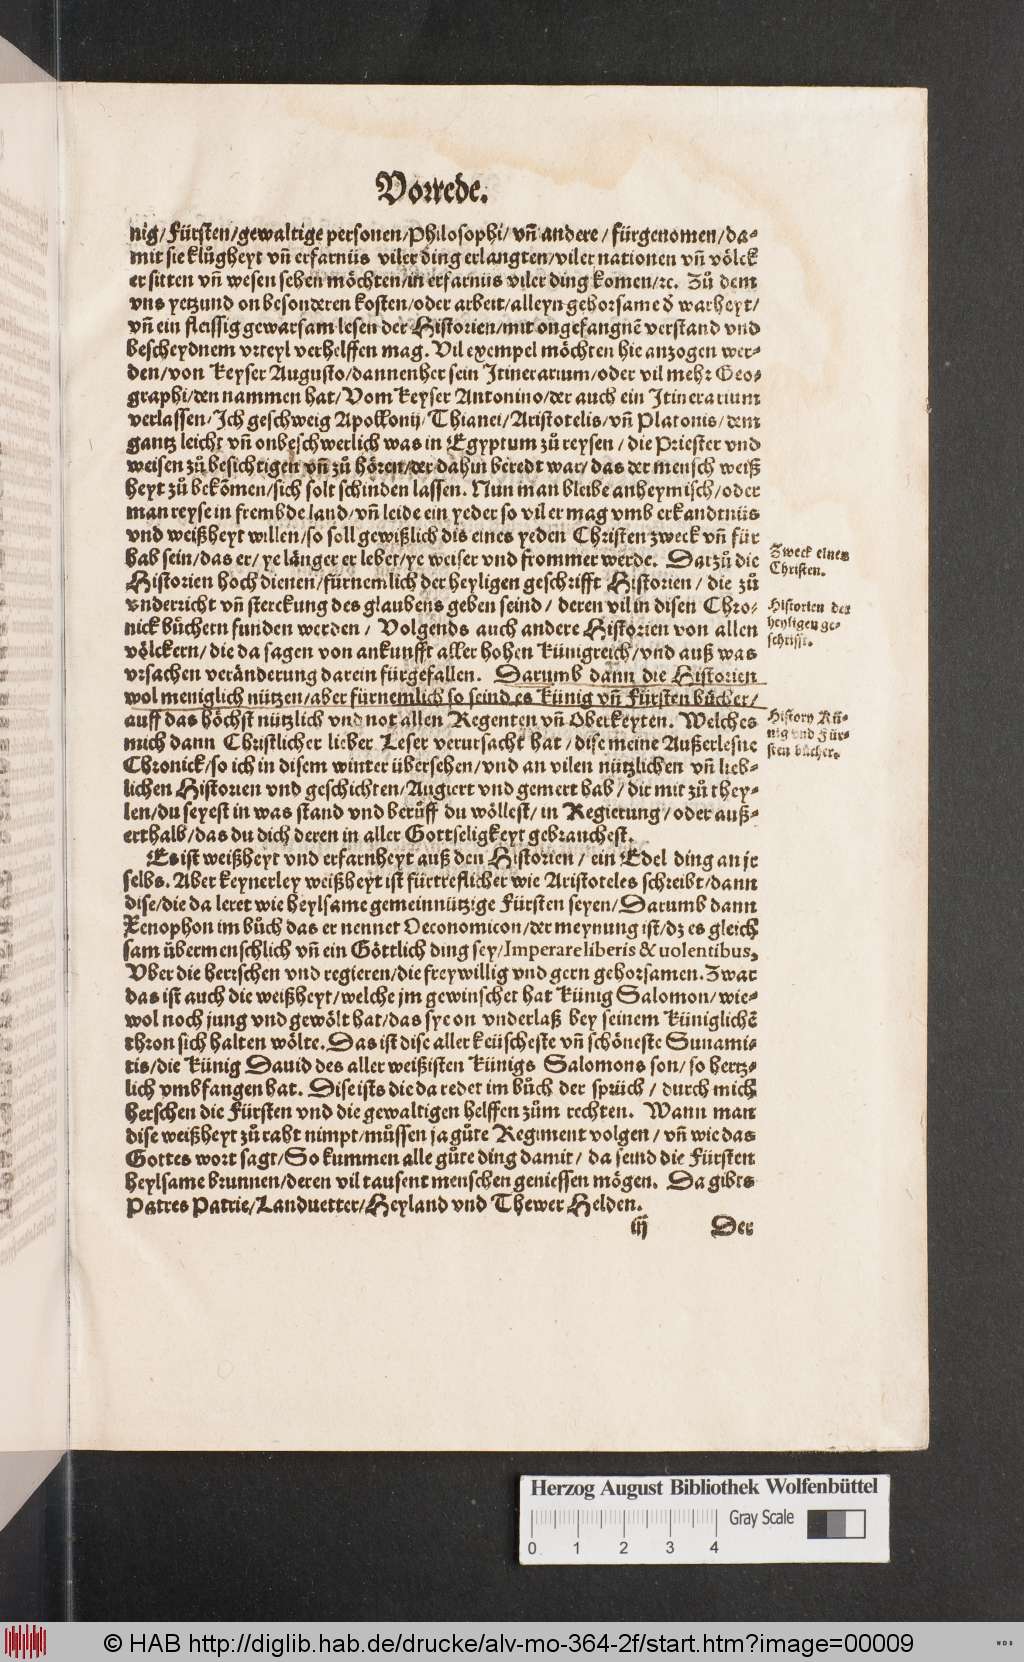 Vorrede.
nig/ Fürsten/ gewaltige personen/ Philosophi/ vñ andere/ fürgenomen/ da-
mit sie klůgheyt vñ erfarnüs viler ding erlangten/ viler nationen vñ völck
er sitten vñ wesen sehen möchten/ in erfarnüs viler ding komen/ ꝛc. Zů dem
vns yetzund on besonderen kosten/ oder arbeit/ alleyn gehorsame d̕ warheyt/
vñ ein fleissig gewarsam lesen der Historien/ mit ongefangnē verstand vnd
bescheydnem vrteyl verhelffen mag. Vil exempel möchten hie anzogen wer-
den/ von Keyser Augusto/ dannenher sein Itinerarium/ oder vil mehr Geo-
graphi/ den nammen hat/ Vom Keyser Antonino/ der auch ein Itinerarium
verlassen/ Ich geschweig Apollonij/ Thianei/ Aristotelis/ vñ Platonis/ dem
gantz leicht vñ onbeschwerlich was in Egyptum zů reysen/ die Priester vnd
weisen zů besichtigen vñ zů hören/ der dahin beredt war/ das der mensch weiß
heyt zů bekōmen/ sich solt schinden lassen. Nun man bleibe anheymisch/ oder
man reyse in frembde land/ vñ leide ein yeder so vil er mag vmb erkandtnüs
vnd weißheyt willen/ so soll gewißlich dis eines yeden Christen zweck vñ für
hab sein/ das er/ ye länger er lebet/ ye weiser vnd frommer werde. Darzů die
Historien hoch dienen/ fürnemlich der heyligen geschrifft Historien/ die zů
vnderricht vñ sterckung des glaubens geben seind/ deren vil in disen Chro-
nick bůchern funden werden/ Volgends auch andere Historien von allen
völckern/ die da sagen von ankunfft aller hohen Künigreich/ vnd auß was
vrsachen veränderung darein fürgefallen. Darumb dann die Historien
wol meniglich nützen/ aber fürnemlich so seind es Künig vñ Fürsten bůcher/
auff das höchst nützlich vnd not allen Regenten vñ Oberkeyten. Welches
mich dann Christlicher lieber Leser verursacht hat/ dise meine Außerlesne
Chronick/ so ich in disem winter übersehen/ vnd an vilen nützlichen vñ lieb-
lichen Historien vnd geschichten/ Augiert vnd gemert hab/ dir mit zů they-
len/ du seyest in was stand vnd berůff du wöllest/ in Regierung/ oder auß-
erthalb/ das du dich deren in aller Gottseligkeyt gebrauchest.
Es ist weißheyt vnd erfarnheyt auß den Historien/ ein Edel ding an jr
selbs. Aber keynerley weißheyt ist fürtreflicher wie Aristoteles schreibt/ dann
dise/ die da leret wie heylsame gemeinnützige Fürsten seyen/ Darumb dann
Xenophon im bůch das er nennet Oeconomicon/ der meynung ist/ dz es gleich
sam übermenschlich vñ ein Göttlich ding sey/ Imperare liberis & uolentibus,
Vber die herrschen vnd regieren/ die freywillig vnd gern gehorsamen. Zwar
das ist auch die weißheyt/ welche jm gewinschet hat Künig Salomon/ wie-
wol noch jung vnd gewölt hat/ das sye on vnderlaß bey seinem Küniglichē
thron sich halten wölte. Das ist dise aller keüscheste vñ schöneste Sunami-
tis/ die Künig Dauid des aller weißisten Künigs Salomons son/ so hertz-
lich vmbfangen hat. Dise ists die da redet im bůch der sprüch/ durch mich
herschen die Fürsten vnd die gewaltigen helffen zům rechten. Wann man
dise weißheyt zů raht nimpt/ můssen ja gůte Regiment volgen/ vñ wie das
Gottes wort sagt/ So kummen alle gůte ding damit/ da seind die Fürsten
heylsame brunnen/ deren vil tausent menschen geniessen mögen. Da gibts
Patres Patrie/ Landuetter/ Heyland vnd Thewer Helden.
iij Der
Zweck eines
Christen.
Historien der
heyligen ge-
schrifft.
History Kü-
nig vnd Für-
sten bůcher.
Herzog August Bibliothek Wolfenbüttel
Gray Scale
0 1 2 3 4
© HAB http://diglib.hab.de/drucke/alv-mo-364-2f/start.htm?image=00009